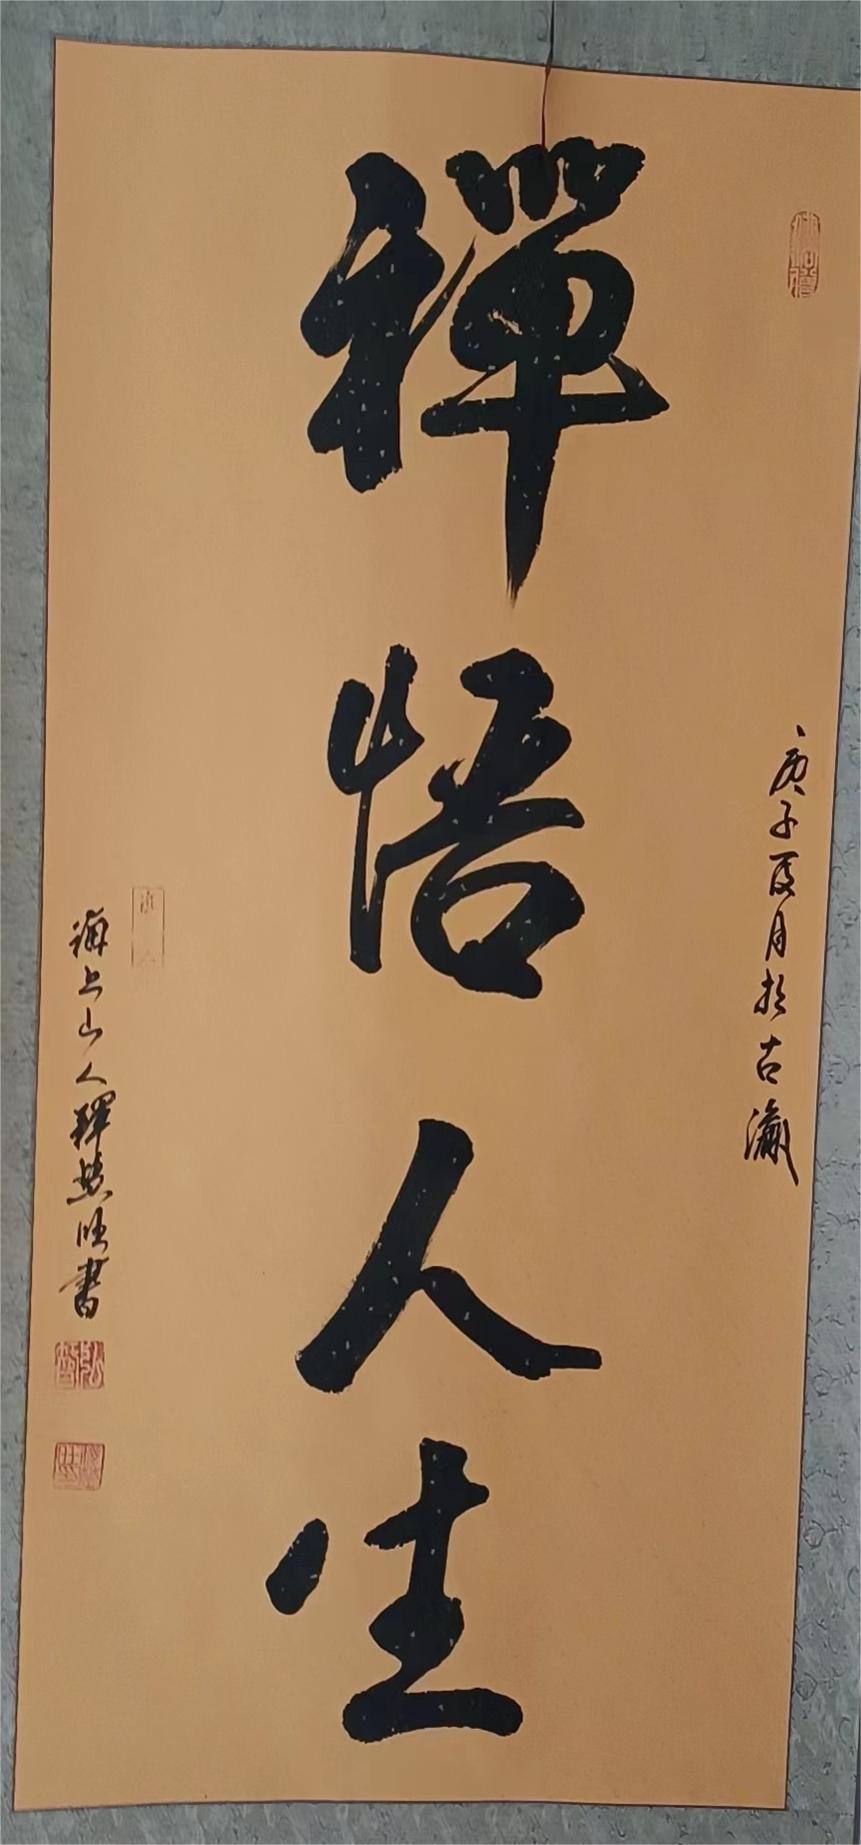 庚子夏月於古瀛
禪悟人生
海上山人釋慧旺書